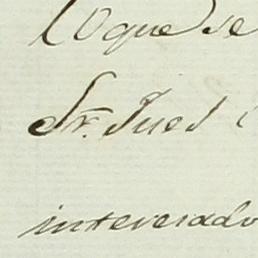 Loque se
Sr. Jues
interesado